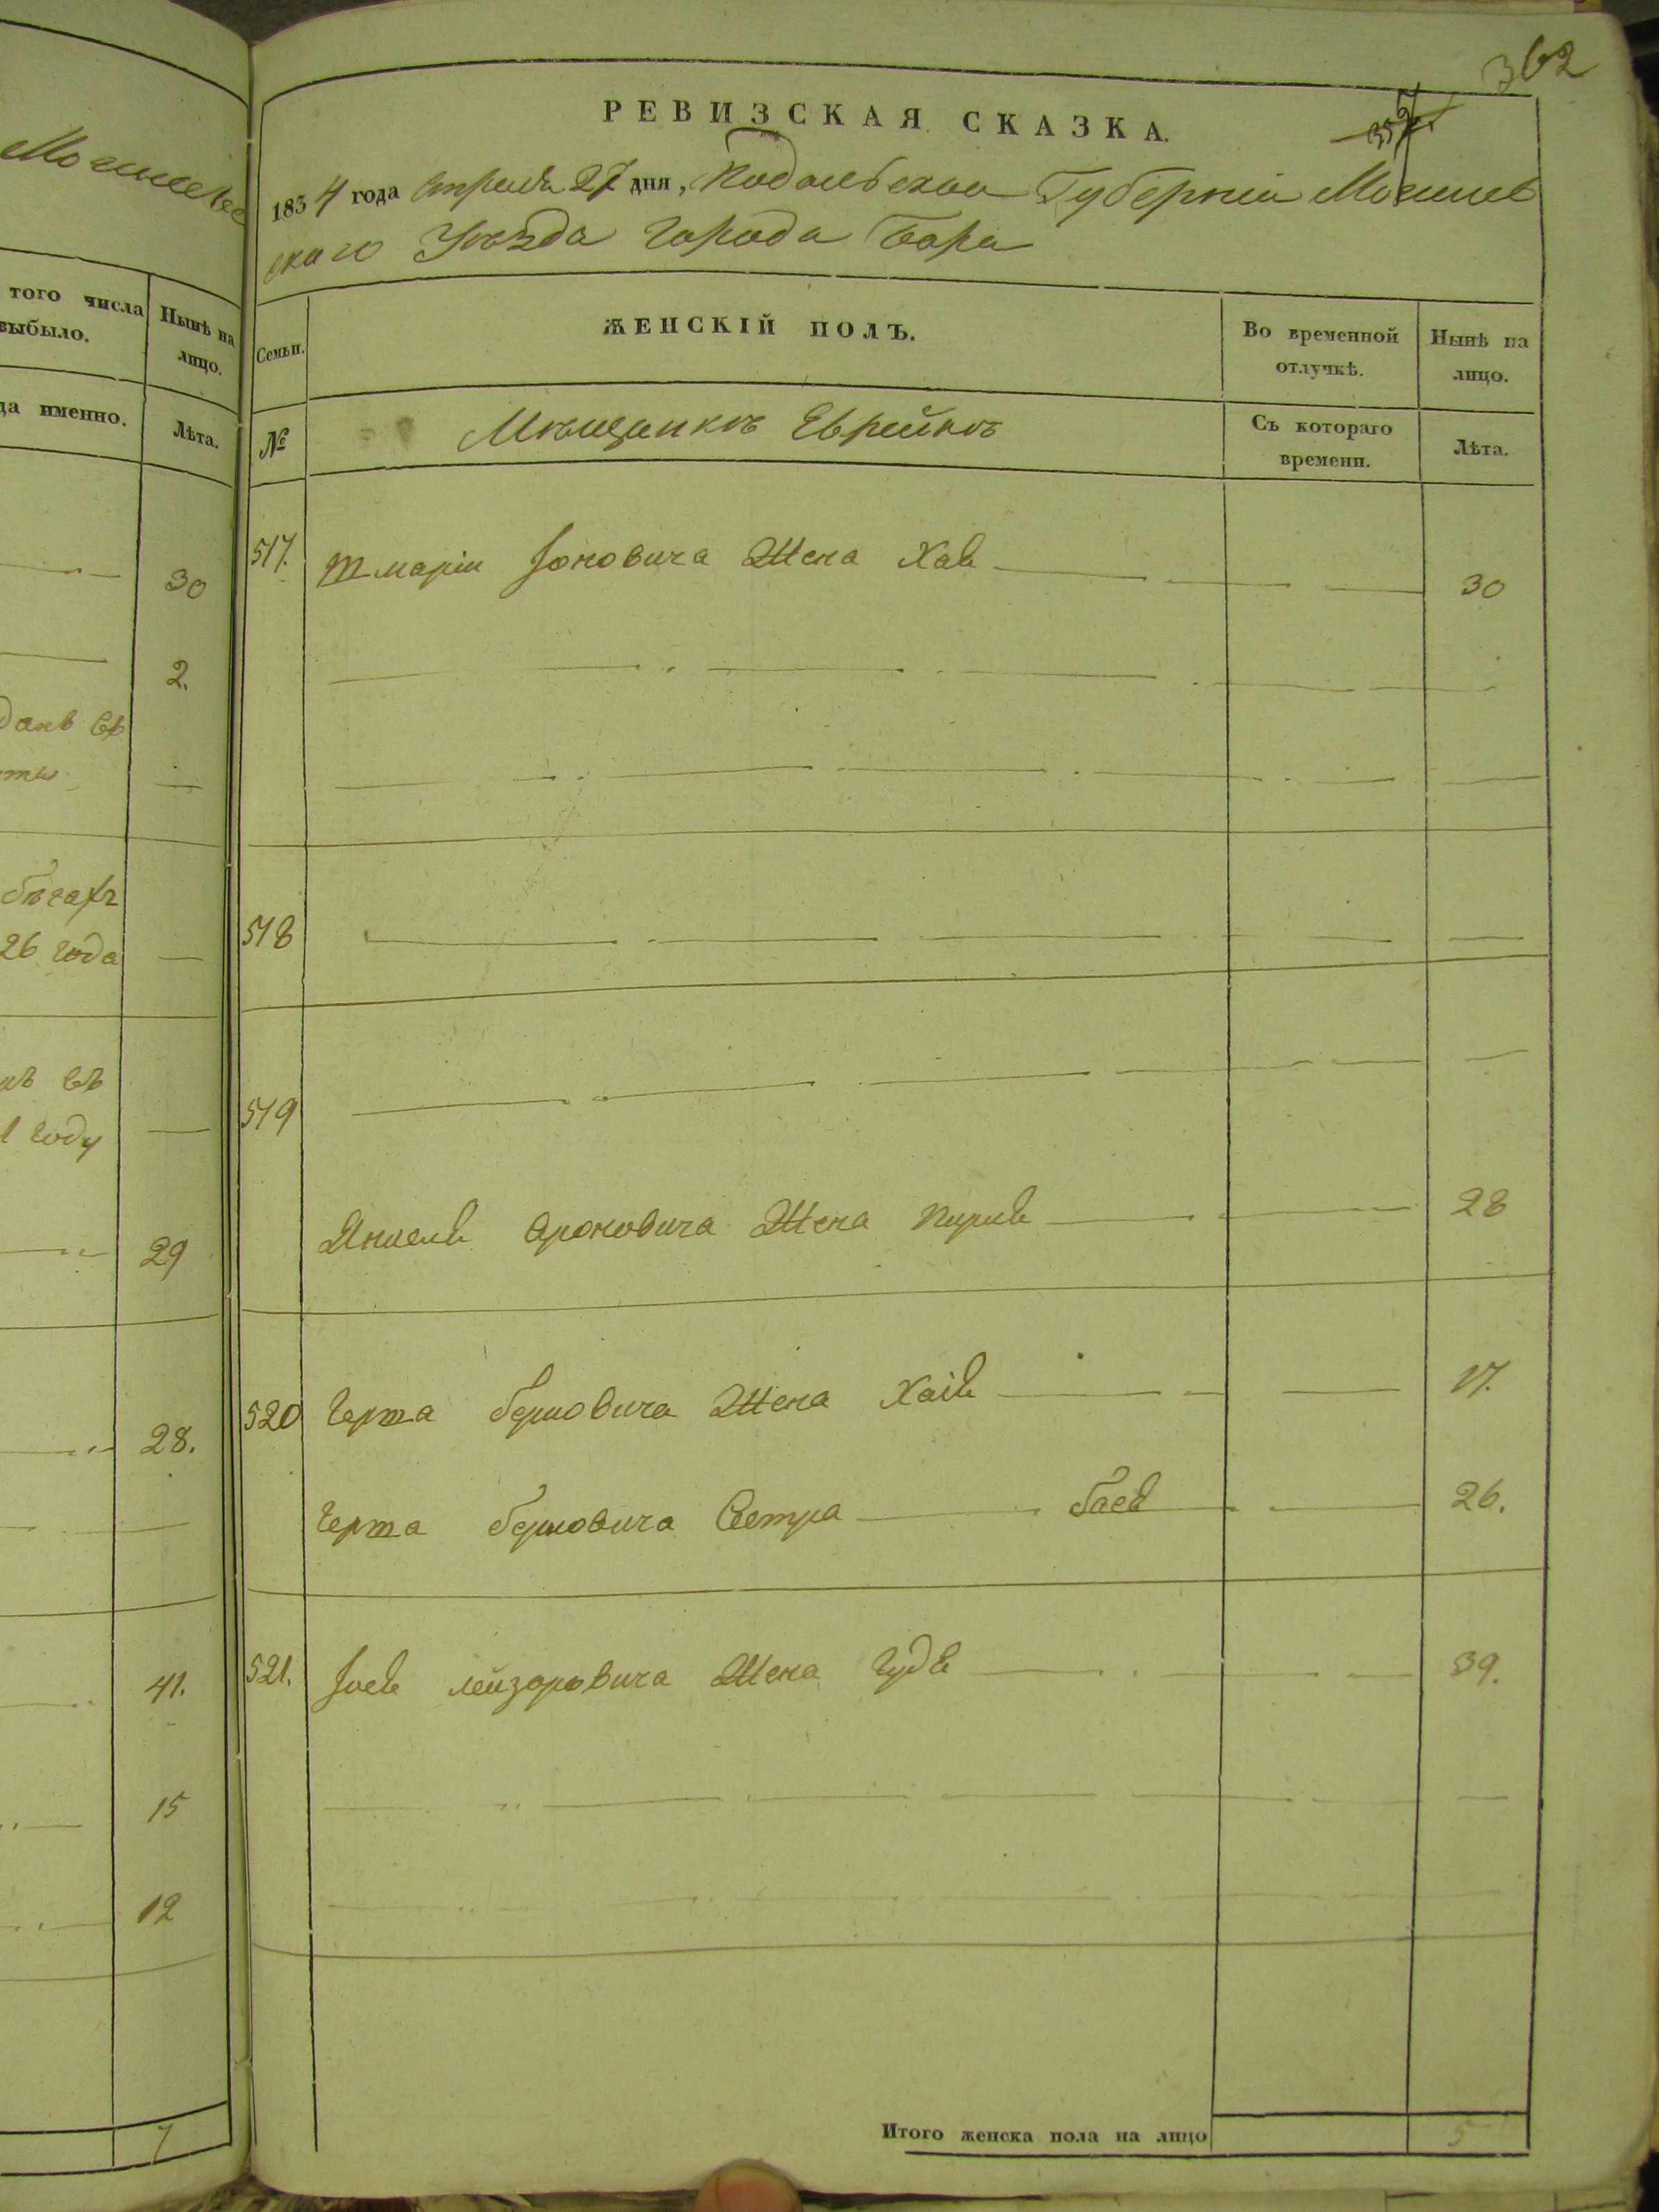 362
357.
РЕВИЗСКАЯ СКАЗКА.
1854 года Апреля 27 дня, Подольской Губернии Могилев
скаго Уѣзда Города Бара
Семьи.
ЖЕНСКІЙ ПОЛЪ.
Во временной отлучкѣ.
Нынѣ на лицо.
№
Мѣщанкъ Еврейкъ
Съ котораго времени.
Лѣта.
517. Шмарiи Іоновича Жена Хав 30
518
519
Янкеля Ароновича Жена Перля 28
520 Герша Берковича Жена Хаiя 17.
Герша Берковича Сестра Бася 26.
521. Іося Лейзоровича Жена Гудя 39.
Итого женска пола на лицо 5
Могилевс
того числа выбыло.
Нынѣ на лицо.
да именно.
Лѣта.
30
2.
бѣгахъ
26 года
1 году
29
28.
41.
15
12
7